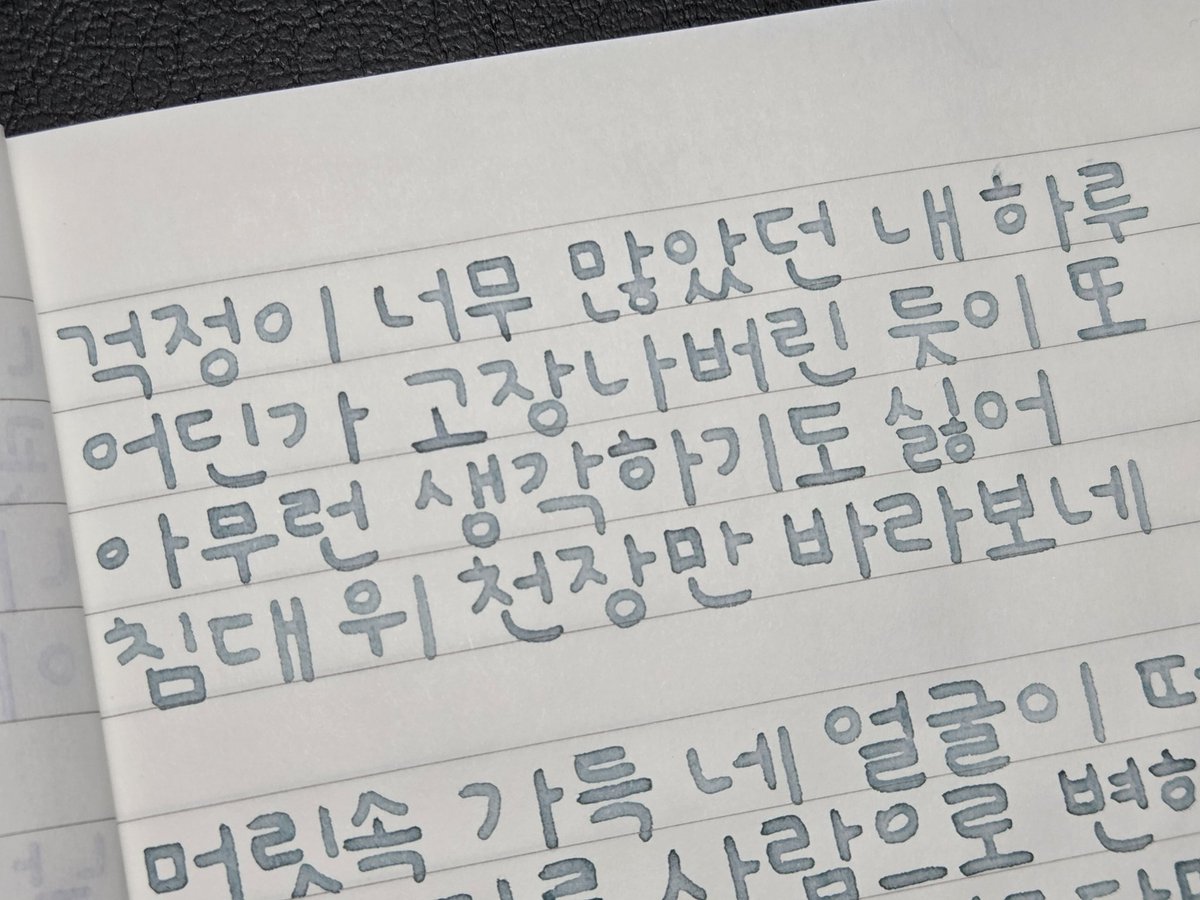 걱정이 너무 많았던 내 하루
어딘가 고장나버린 듯이 또
아무런 생각하기도 싫어
침대 위 천장만 바라보네
머릿속 가득 네 얼굴이
사람으로